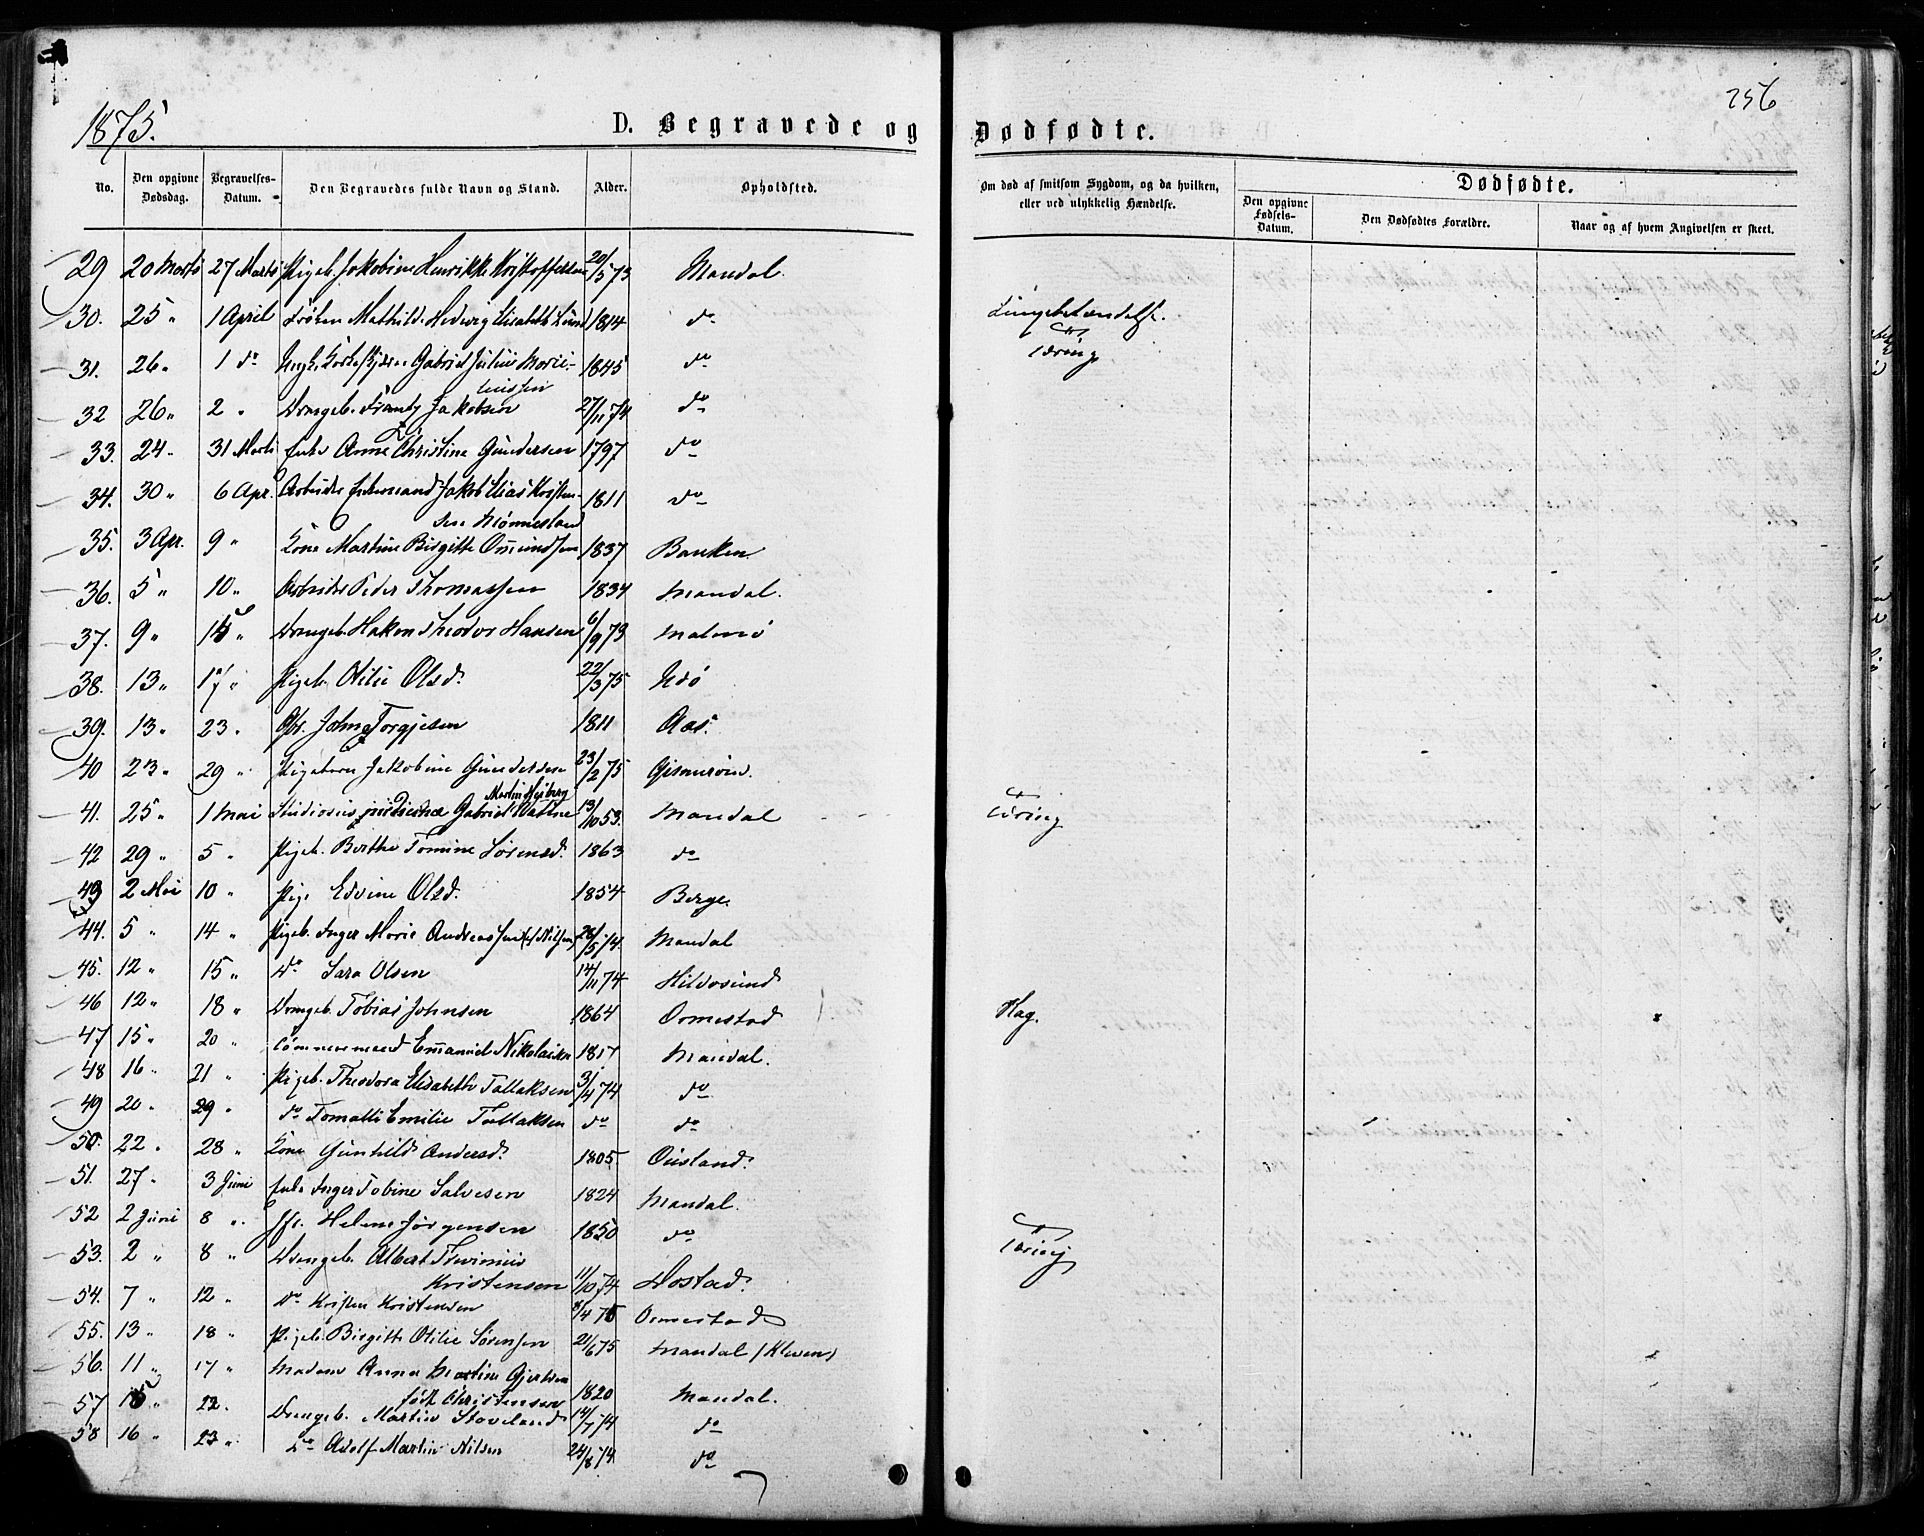 1875.
256
D. Begravede og Dødfødte.
No. Den opgivne Dødsdag. Begravelses-Datum. Den Begravedes fulde Navn og Stand. Alder. Opholdsted. Om død af smitsom Sygdom, og da hvilken, eller ved ulykkelig Hændelse. Dødfødte. Den opgivne Fødsels-Datum. Den Dødfødtes Forældre. Naar og af hvem Angivelsen er skeet.
29 20 Marts 27 Marts Pigeb. Jakobine Henrikke Kristoffersen 20/5 73 Mandal.
30. 25 " 1 April Frøken Mathilde Hedvig Elisabeth Lund 1814 do Lungebetændelse.
31. 26 " 1 do Gabriel Julius 1845 do Tæring
32 26 " 2 " Drengeb. Jakobsen 27/11 74 do
33. 24 " 31 Marts Enke Anne Christine Gundersen 1797 do
34. 30 " 6 Apr. Arbeider Enkemand Jakob Elias Kristensen 1811 do
35. 3 Apr. 9 " Kone Martine Birgitte Omundsen 1837 Banken
36. 5 " 10 " Arbeider Peder Thomassen 1834 Mandal.
37. 9 " 15 " Drengeb. Hakon Theodor Hansen 6/9 73 Malmø
38. 13 " 17 " Pigeb. Otilie Olsd. 22/3 75 Udø
39. 13 " 23 " Gbr. John Torgjesen 1811 Aas.
40 23 " 29 " Pigebarn Jakobine Gundersen 23/2 75 Gismerøen.
41. 25 " 1 Mai Studiosus medicinæ Gabriel Martin Heiberg Wattne 13/10 53. Mandal Tæring
42 29 " 5 " Pigeb. Berthe Tomine Sørensd. 1863 do
43 2 Mai 10 " Pige Edvine Olsd. 1854 Berge.
44. 5 " 14 " Pigeb. Inger Marie Andreassen (Nilsen) 28/5 74. Mandal
45. 12 " 15 " do Sara Olsen 14/11 74 Hildosund
46 12 " 18 " Drengeb. Tobias Johnsen 1864 Ormestad Krag.
47 15 " 20 " Tømmermand Emanuel Nikolaisen 1817 Mandal.
48 16 " 21 " Pigeb. Theodora Elisabeth Tallaksen 3/4 74 do
49 20 " 29 " do Emilie Tallaksen do do
50. 22 " 28 " Kone Gunhild Andersd. 1805. Øusland.
51. 27 " 3 Juni Enke Inger Tobine Salvesen 1824 Mandal.
52 2 Juni 8 " Jfr. Helene Jørgensen 1850 do Tæring
53. 2 " 8 " Drengeb. Albert Kristensen 11/10 74 Dostad.
54. 7 " 12 " do Kristen Kristensen 8/4 75 Ormestad
55. 13 " 18 " Pigeb. Birgitte Otilie Sørensen 21/6 75 Mandal (Kleven)
56. 11 " 17 " Madame Anna Martine Gjertsen født Christensen 1820 Mandal.
57 15 " 22. Drengeb. Martin Staveland 14/7 74 do
58 16 " 23 " do Adolf Martin Nilsen 24/8 74. do